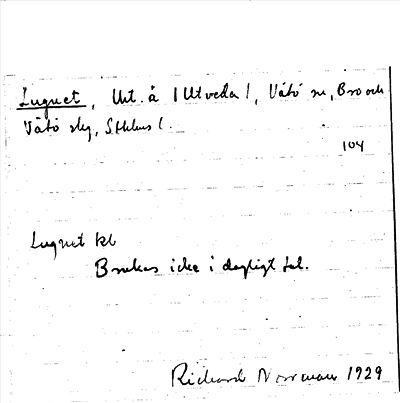 Lugnet, Utt. å (Utveda), Vätö sn, Bro och
Vätö skg, Sthlms l.
104
Lugnet kl
Brukas icke i dagligt tal.
Richard Norrman 1929